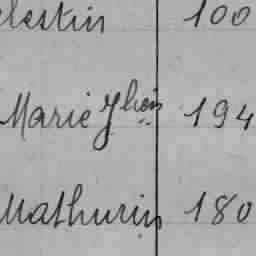 elestin 100
Marie Jhein 194
Mathurin 180